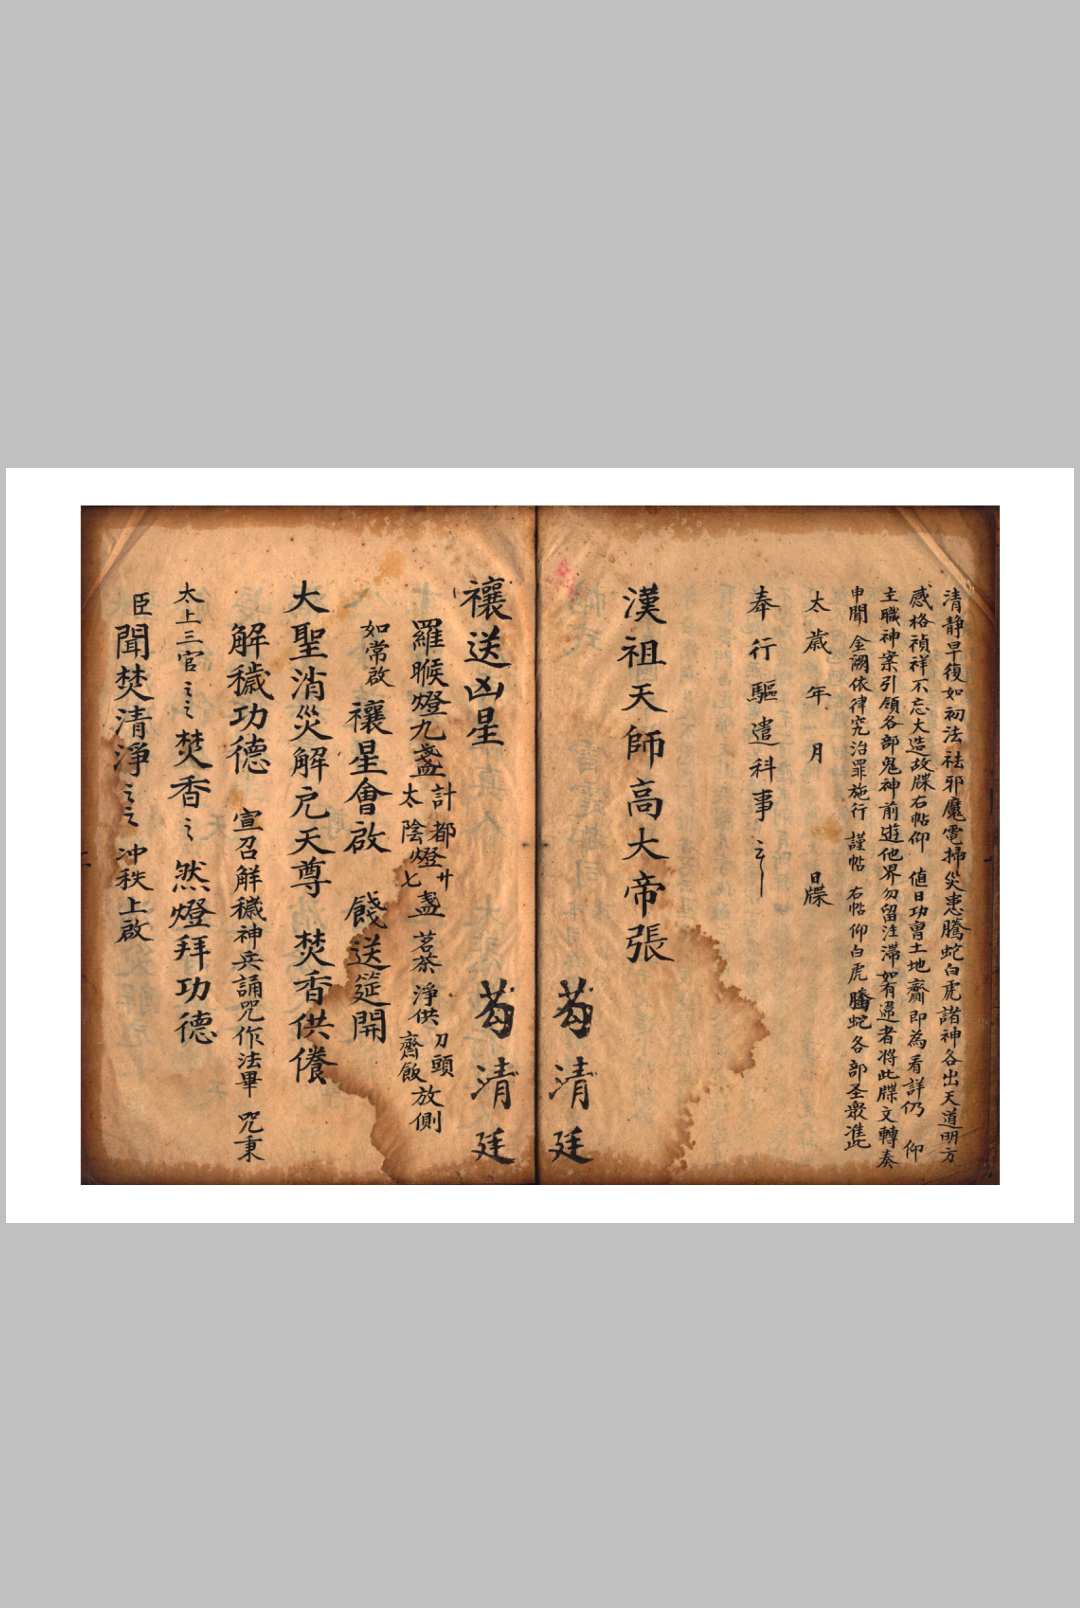 清靜早復如初法祛邪魔電掃災恚騰蛇白虎諸神各出天道明方
感格禎祥不忘大造故牒右帖仰 值日功曹土地齋即為看詳仍 仰
主職神案引領各部鬼神前遊他界勿留注滯如有違者將此牒文轉奏
申聞 金闕依律究治罪施行 謹帖 右帖仰白虎騰蛇各部圣眾准此
太歲 年 月 日牒
奉行驅遣科事
漢祖天師高大帝張
清廷
禳送凶星 清廷
羅睺燈九盞 計都燈廿 太陰燈七盞 茗茶淨供 刀頭 齋飯 放側
如常啟 禳星會啟 餞送筵開
大聖消災解厄天尊 焚香供養
解穢功德 宣召解穢神兵誦咒作法畢 咒秉
太上三官 焚香 然燈拜功德
臣聞焚清淨 沖秩上啟